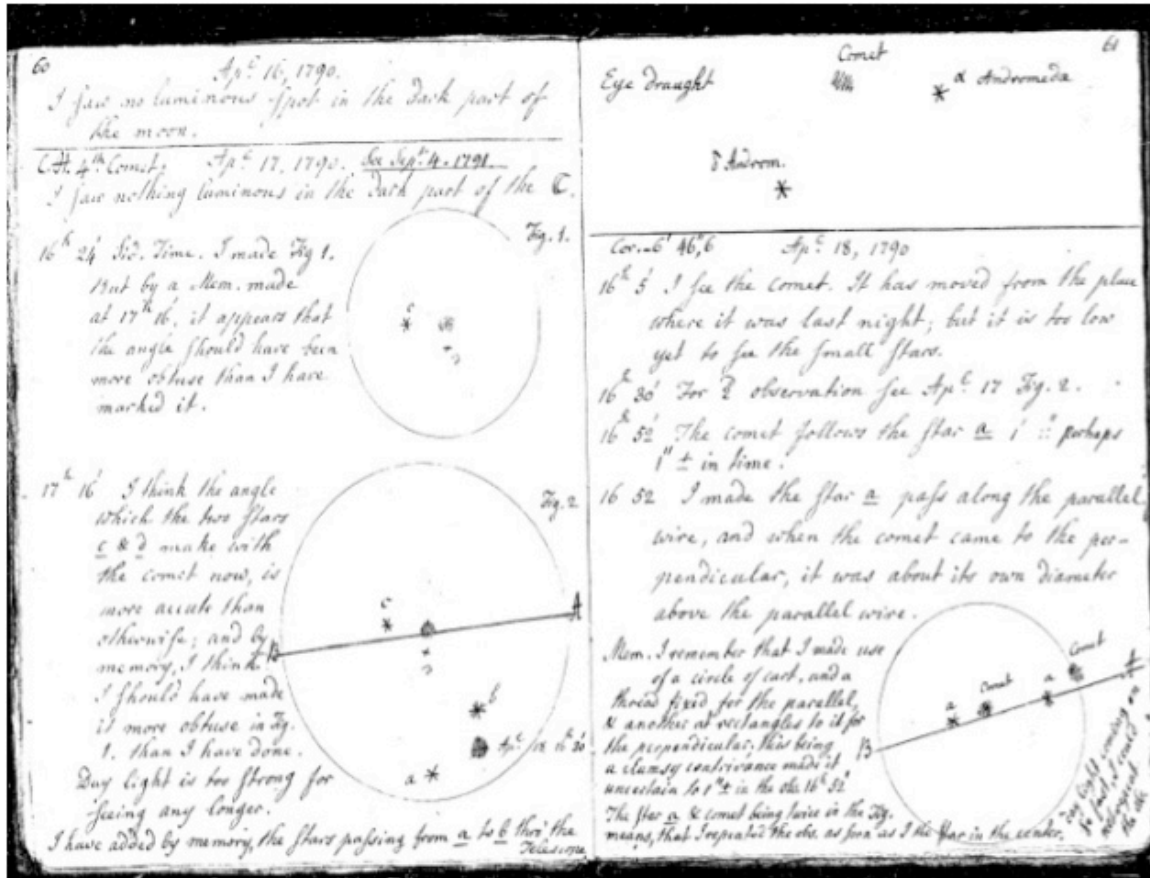 60
Apl. 16, 1790.
I saw no luminous spot in the dark part of
the moon.
C.H. 4th Comet. Apl. 17, 1790. See Sept. 4. 1791.
I saw nothing luminous in the dark part of the ☾.
Fig. 1.
16h 24' Sid. Time. I made Fig 1.
But by a Mem. made
at 17h 16', it appears that
the angle should have been
more obtuse than I have
marked it.
c
17h 16' I think the angle
which the two stars
c & d make with
the comet now, is
more accute than
otherwise; and by
memory, I think
I should have made
it more obtuse in Fig.
1. than I have done.
Day light is too strong for
seeing any longer.
Fig. 2
c
A
B
b
Apl. 18 16h 30'
a
I have added by memory, the stars passing from a to b thro' the
Telescope
61
Eye draught
Comet
α Andromeda
δ Androm.
Cor. -6' 46",6 Apl. 18, 1790
16h 5' I see the comet. It has moved from the place
where it was last night; but it is too low
yet to see the small stars.
16h 30' For observation see Apl. 17 Fig. 2.
16h 52' The comet follows the star a 1' :: perhaps
1" ± in time.
16 52 I made the star a pass along the parallel
wire, and when the comet came to the per-
pendicular, it was about its own diameter
above the parallel wire.
Mem. I remember that I made use
of a circle of card, and a
thread fixed for the parallel,
& another at rectangles to it for
the perpendicular; this being
a clumsy contrivance made it
uncertain to 1" ± in the obs. 16h 52'
The star a & comet being twice in the Fig.
means, that I repeated the obs. as soon as I the star in the center.
a
Comet
a
Comet
A
B
Day light coming on
so fast, I could
not repeat
the obs